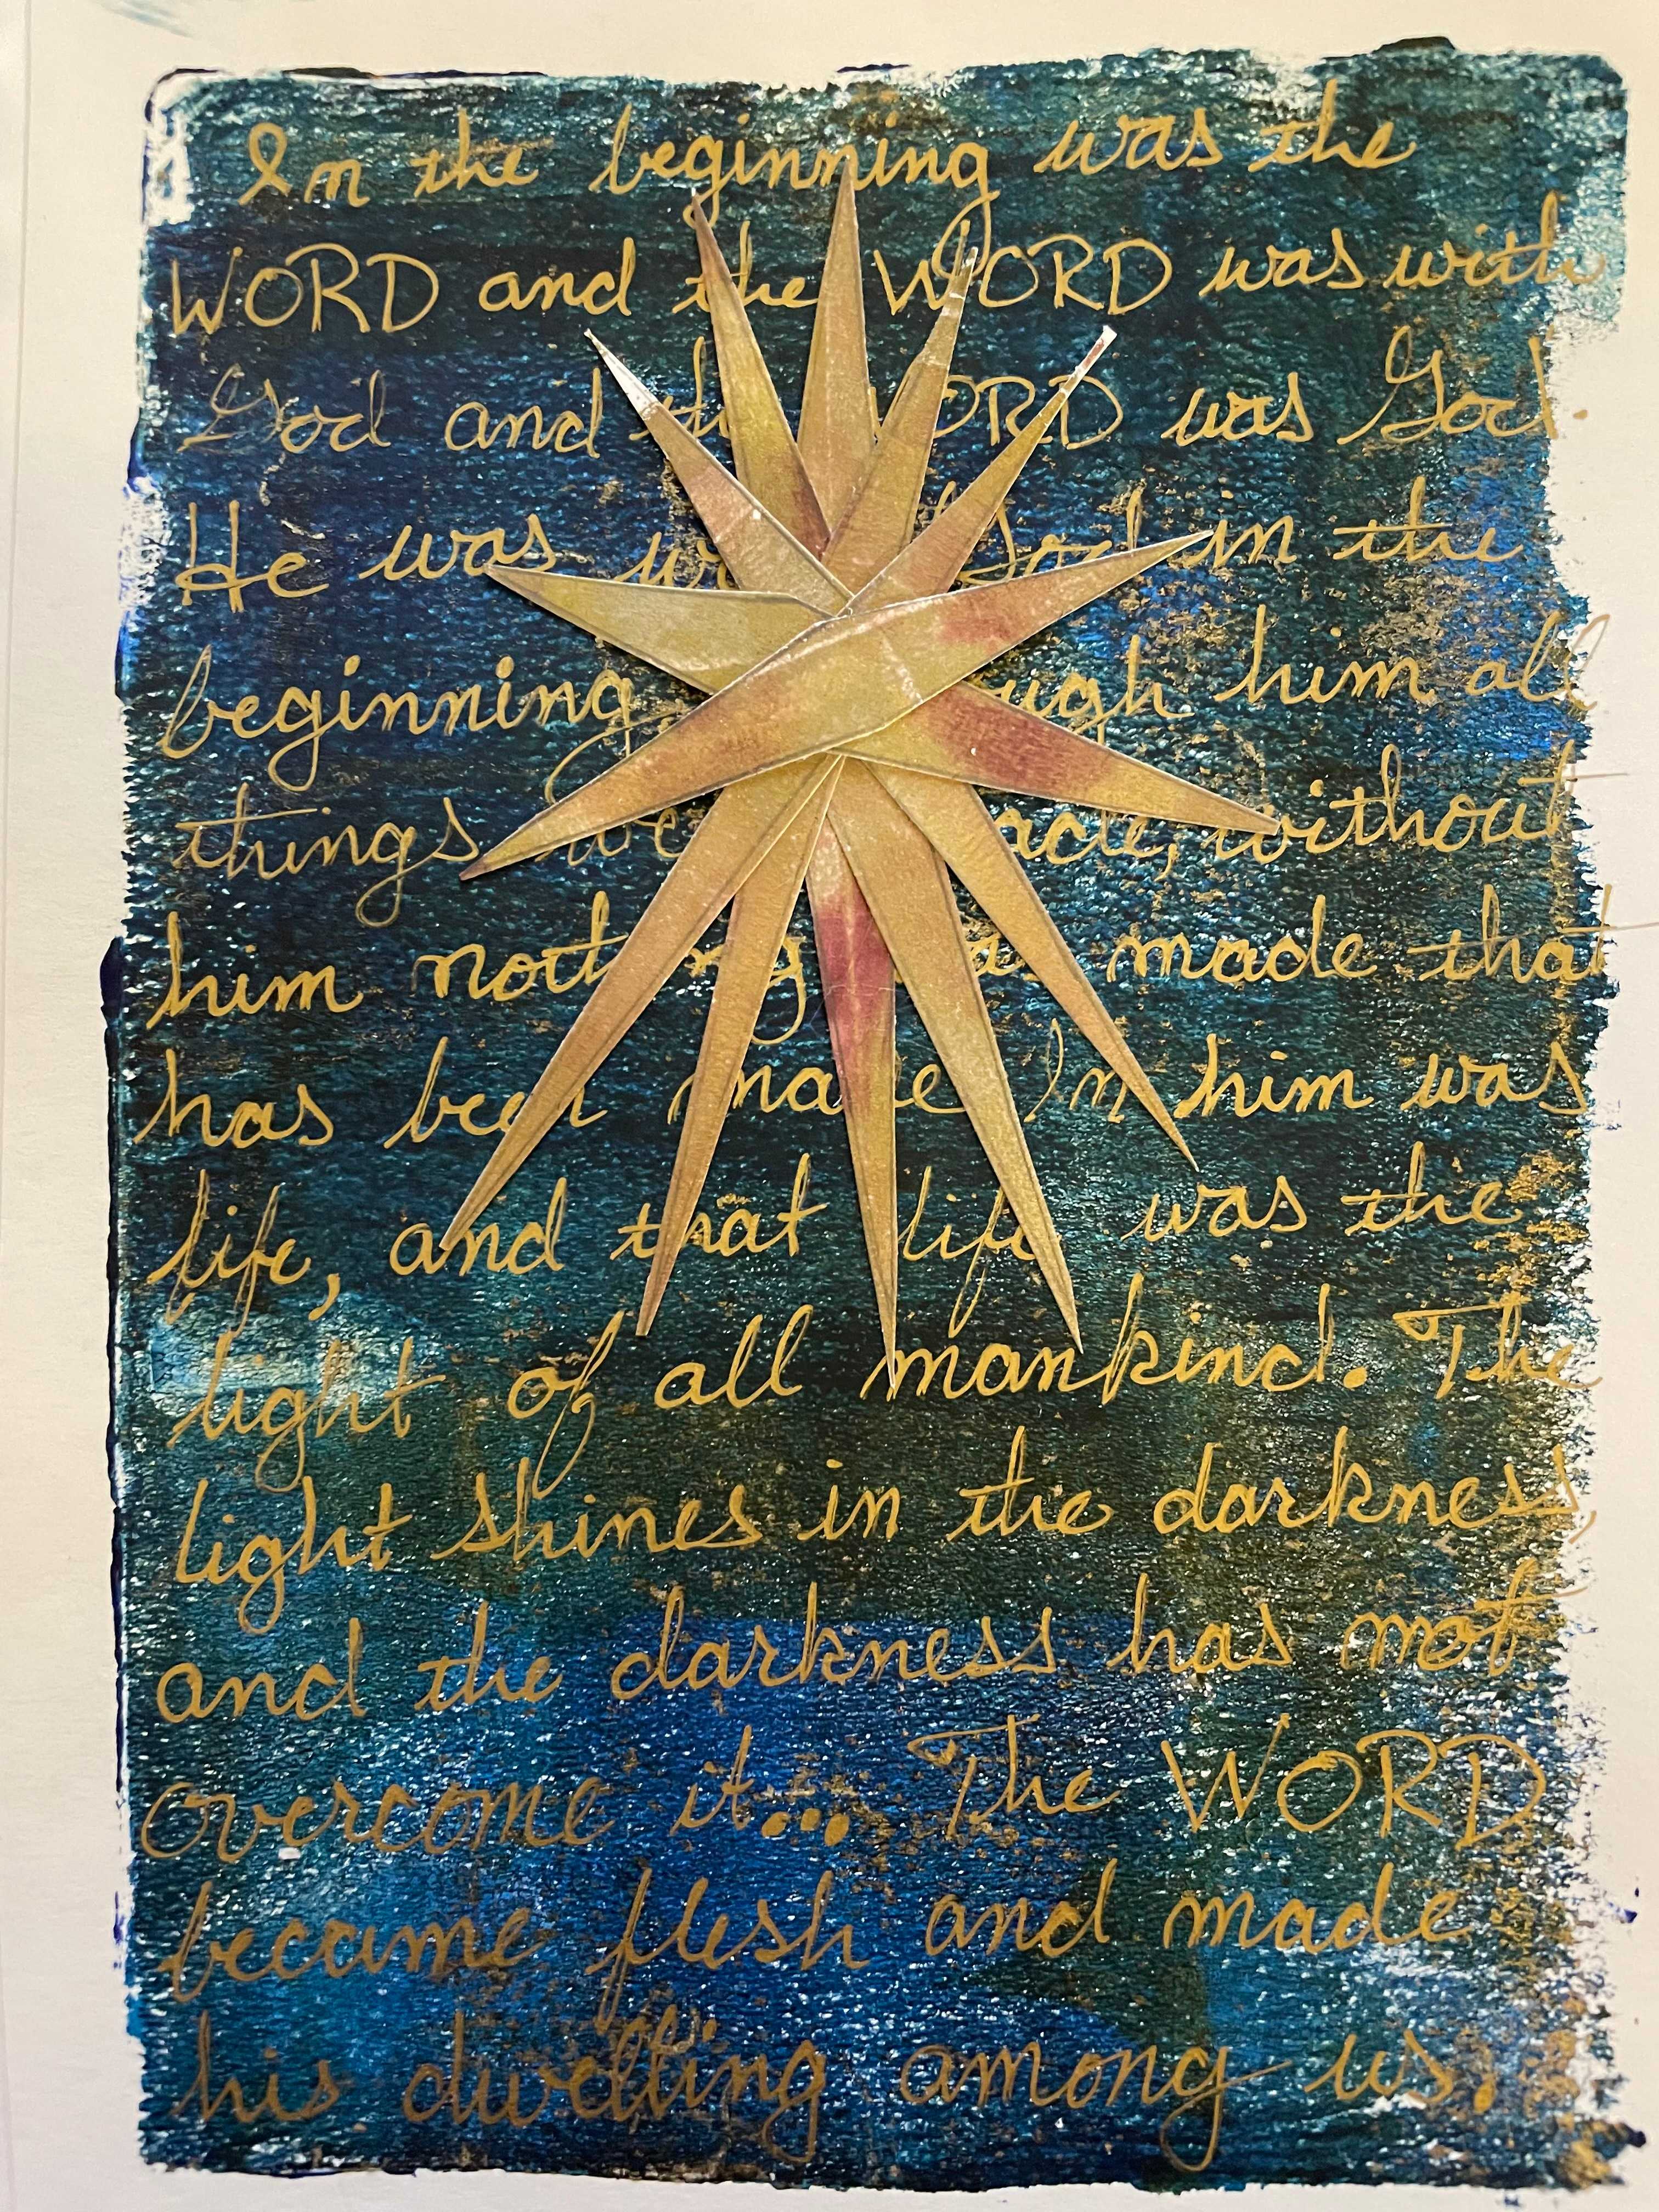 In the beginning was the
WORD and the WORD was with
God and the WORD was God.
He was God in the
beginning him all
things without
him nothing was made that
has been made In him was
life, and that life was the
light of all mankind. The
light shines in the darkness,
and the darkness has not
overcome it... The WORD
became flesh and made
his dwelling among us.